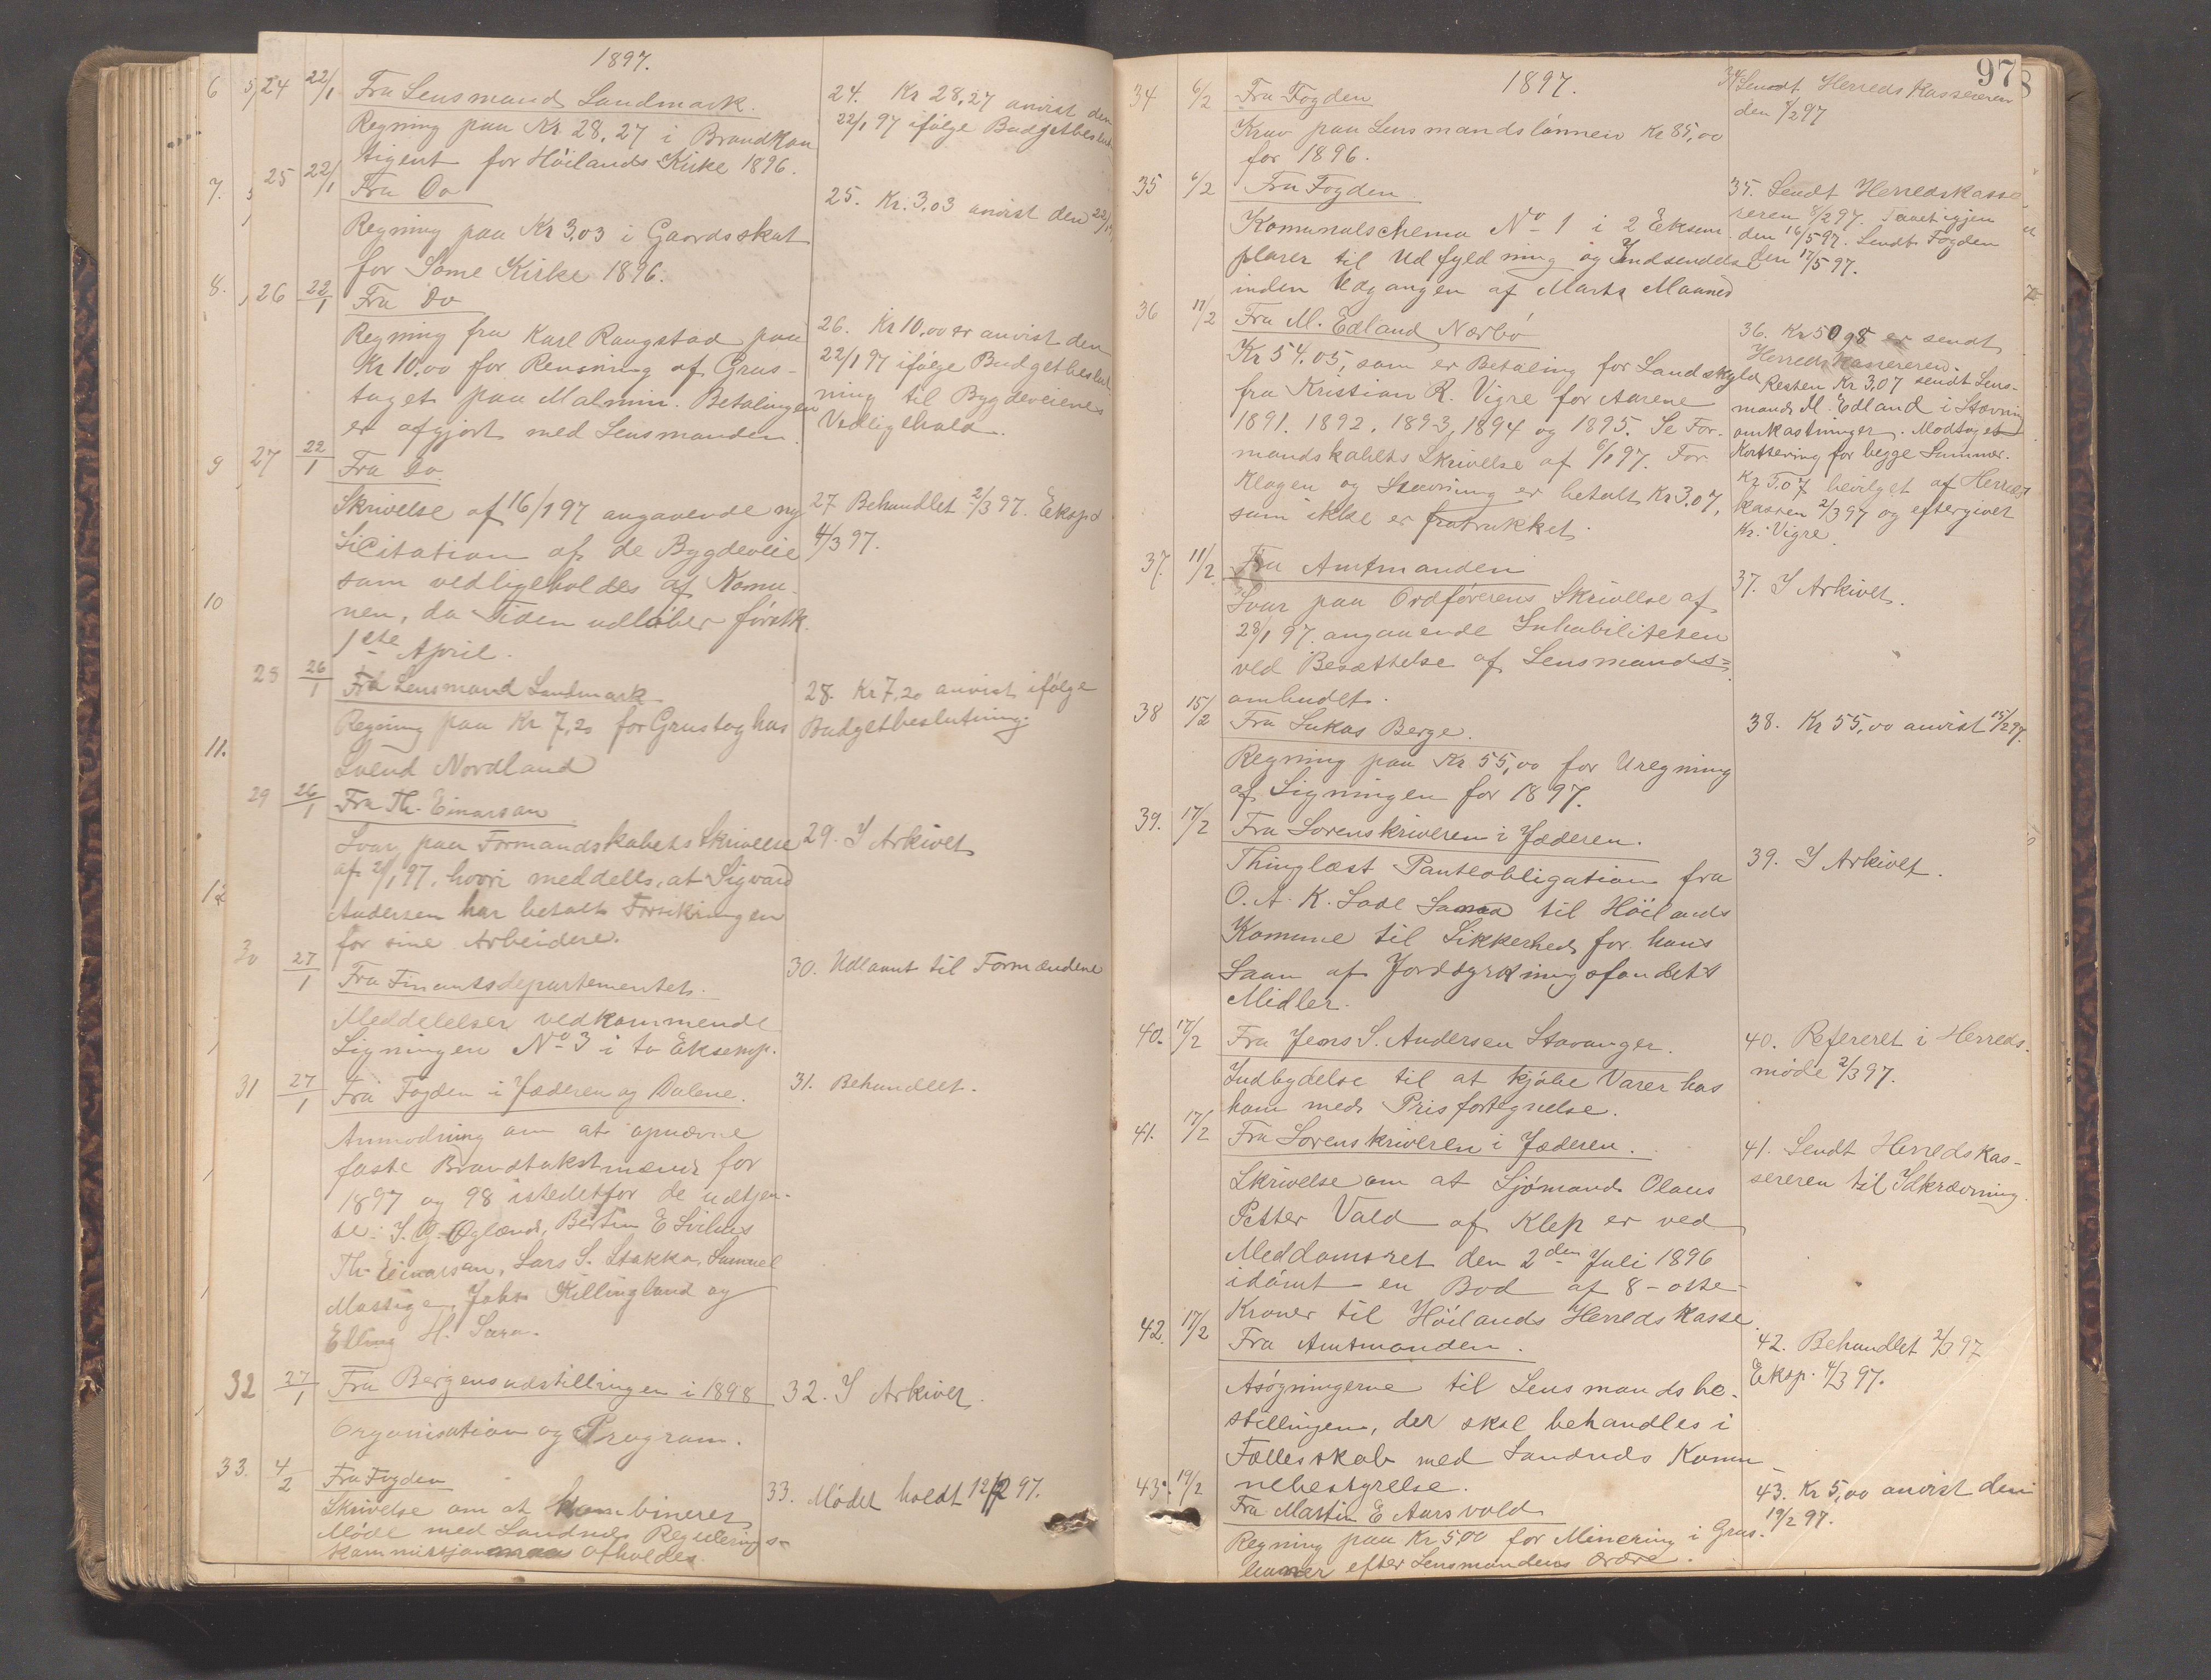 1897.
24 22/1 Fra Lensmand Landmark.
Regning paa Kr 28,27 i Brandkon
tigent for Höilands Kirke 1896.
24. Kr 28,27 anvist den
22/1 97 ifölge Budgetbeslut-
25 22/1 Fra Do
Regning paa Kr 3,03 i Gaardsskat
for Some Kirke 1896.
25. Kr. 3,03 anvist den 22/1
26 22/1 Fra Do
Regning fra Karl Raugstad paa
Kr 10,00 for Rensning af Grus-
taget paa Malmin. Betalingen
er afgjort med Lensmanden.
26. Kr 10,00 er anvist den
22/1 97 ifölge Budgetbeslut-
ning til Bygdeveienes
Vedligehold.
27 22/1 Fra Do.
Skrivelse af 16/1 97 angaaende ny
Licitation af de Bygdeveie
som vedligeholdes af Komu-
nen, da Tiden udlöber förstk.
1ste April.
27 Behandlet 2/3 97. Eksp d
4/3 97.
28 26/1 Fra Lensmand Landmark
Regning paa Kr 7,20 for Grustag hos
Svend Nordland
28. Kr 7,20 anvist ifölge
Budgetbeslutning.
29 26/1 Fra Th. Einarsen
Svar paa Formandskabets Skrivelse
af 21/1 97, hvori meddeles, at Sigvard
Andersen har betalt Forsikringen
for sine Arbeidere.
29. I Arkivet
30 27/1 Fra Finantsdepartementet.
Meddelelser vedkommende
Ligningen No 3 i to Eksemp.
30. Udlaant til Formændene
31 27/1 Fra Fogden i Jæderen og Dalene.
Anmodning om at opnævne
faste Brandtakstmænd for
1897 og 98 istedetfor de udtjen-
te: J. G. Ogland, Bertin E Svihus
Th. Einarsen, Lars S. Stokka, Samuel
Massige, John Killingland og
Elling H. Søra.
31. Behandlet.
32 27/1 Fra Bergensudstillingen i 1898
Organisation og Program.
32. I Arkivet.
33. 4/2 Fra Fogden
Skrivelse om at kombineret
Möde med Sandnes Regulerings-
kommissjon afholdes.
33. Mödet holdt 12/2 97.
97
1897.
34 6/2 Fra Fogden
Krav paa Lensmandslönnen Kr 85,00
for 1896.
34 Sendt Herredskassereren
den 8/2 97
35 6/2 Fra Fogden
Komunalschema No 1 i 2 Eksem-
plarer til Udfyldning og Indsendelse
inden Udgangen af Marts Maaned
35. Sendt Herredskasse-
reren 8/2 97. Faaet igjen
den 16/5 97. Sendt Fogden
den 17/5 97.
36 11/2 Fra M. Edland Nærbö
Kr 54,05, som er Betaling for Landskyld
fra Kristian R. Vigre for Aarene
1891. 1892. 1893, 1894 og 1895. Se For-
mandskabets Skrivelse af 6/1 97. For
Klagen og Stævning er betalt Kr 3,07,
som ikke er fratrukket.
36. Kr 50,98 er sendt
Herredskassereren.
Resten Kr 3,07 sendt Lens-
mand M. Edland i Stævning
omkastninger. Modtaget
Kvittering for begge Summer.
Kr 3,07 bevilget af Herreds-
kassen 2/3 97 og eftergivet
Kr. Vigre.
37. 11/2 Fra Amtmanden
Svar paa Ordförerens Skrivelse af
28/1 97. angaaende Inhabiliteten
ved Besættelse af Lensmands-
ombudet.
37. I Arkivet.
38 15/2 Fra Lukas Berge.
Regning paa Kr 55,00 for Uregning
af Ligningen for 1897.
38. Kr 55,00 anvist 15/2 97.
39. 17/2 Fra Sorenskriveren i Jæderen.
Thinglæst Panteobligation fra
O. A. K. Lode til Höilands
Komune til Sikkerhed for hans
Laan af Jorddyrkningsfondets
Midler.
39. I Arkivet.
40. 17/2 Fra Jens S. Andersen Stavanger.
Indbydelse til at kjöbe Varer hos
ham med Prisfortegnelse.
40. Refereret i Herreds-
möde 2/3 97.
41. 17/2 Fra Sorenskriveren i Jæderen.
Skrivelse om at Sjömand Olaus
Petter Vald af Klep er ved
Meddomsret den 2den Juli 1896
idömt en Bod af 8 – otte –
Kroner til Höilands Herredskasse.
41. Sendt Herredskas-
sereren til Idkrævning.
42. 17/2 Fra Amtmanden.
Asögningerne til Lensmandsbe-
stillingen, der skal behandles i
Fællesskab med Sandnes Komu-
nebestyrelse.
42. Behandlet 2/3 97
Eksp. 4/3 97.
43. 19/2 Fra Martin E Aarsvold
Regning paa Kr 5,00 for Minering i Grus-
efter Lensmandens Ordre.
43. Kr 5,00 anvist den
19/2 97.